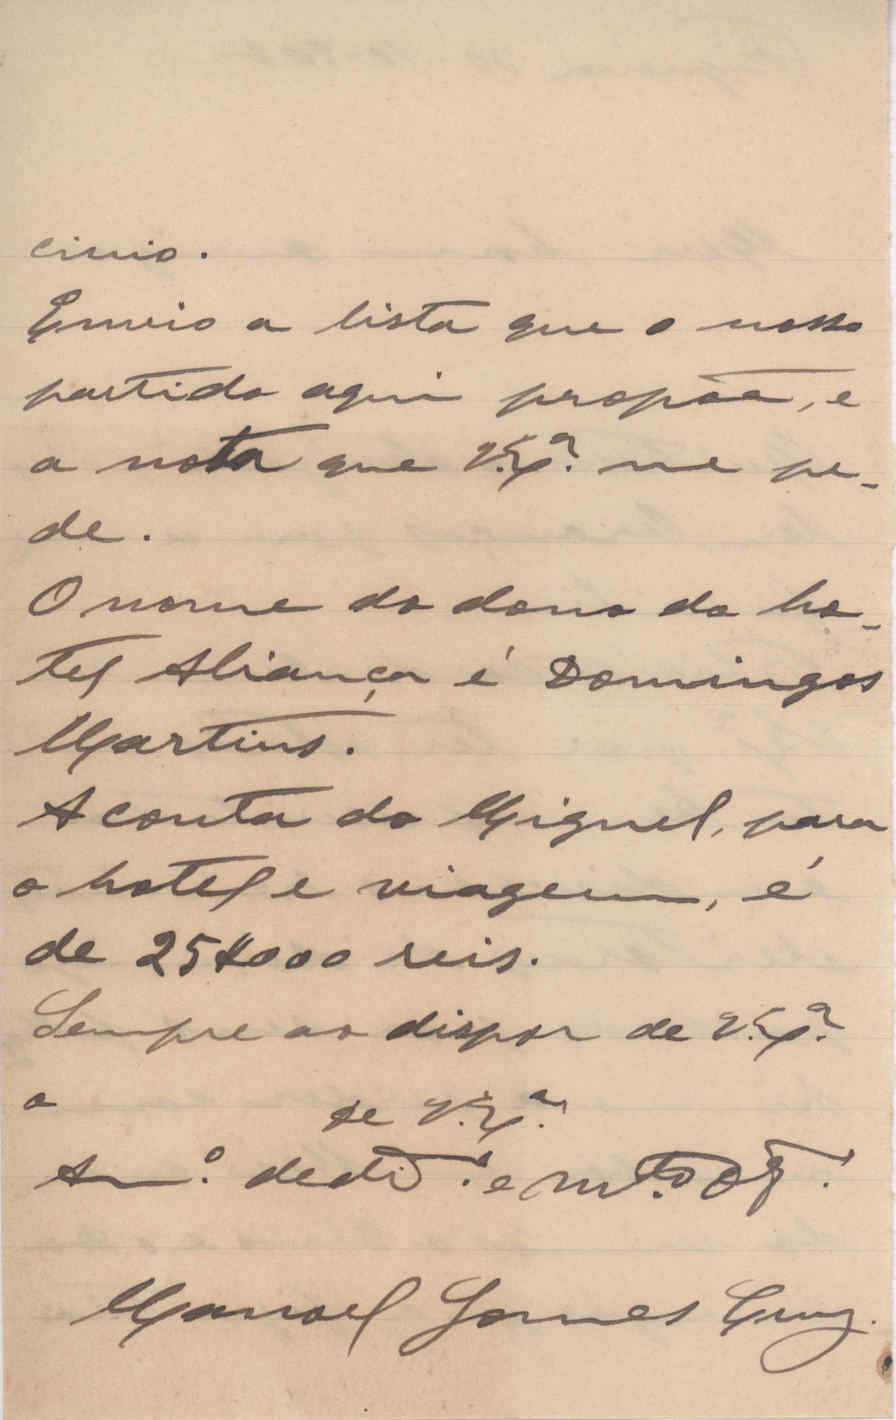 cinio.
Envio a lista que o nosso
partido aqui propõe, e
a nota que V. Ex.ª me pe-
de.
O nome do dono do ho-
tel Aliança é Domingos
Martins.
A conta do Miguel, para
o hotel e viagem, é
de 25$000 reis.
Sempre ao dispor de V. Ex.ª
o
de V. Ex.ª
Am.º dedic.º e m.to Obg.º
Manoel Gomes Cruz.